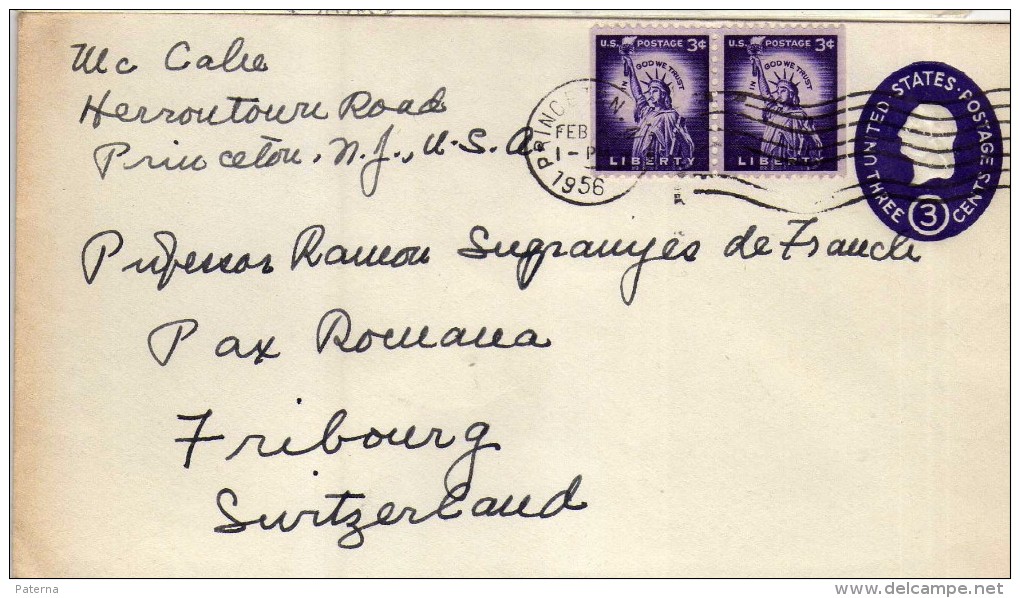 Mc Cabe
Herrontown Road
Princeton, N.J., U.S.A.
U.S. POSTAGE 3¢
IN GOD WE TRUST
LIBERTY
U.S. POSTAGE 3¢
IN GOD WE TRUST
LIBERTY
PRINCETON
FEB
1 - P
1956
UNITED STATES·POSTAGE
THREE 3 CENTS
Professor Ramon Sugranyes de Franch
Pax Romana
Fribourg
Switzerland
Paterna
delcampe.net